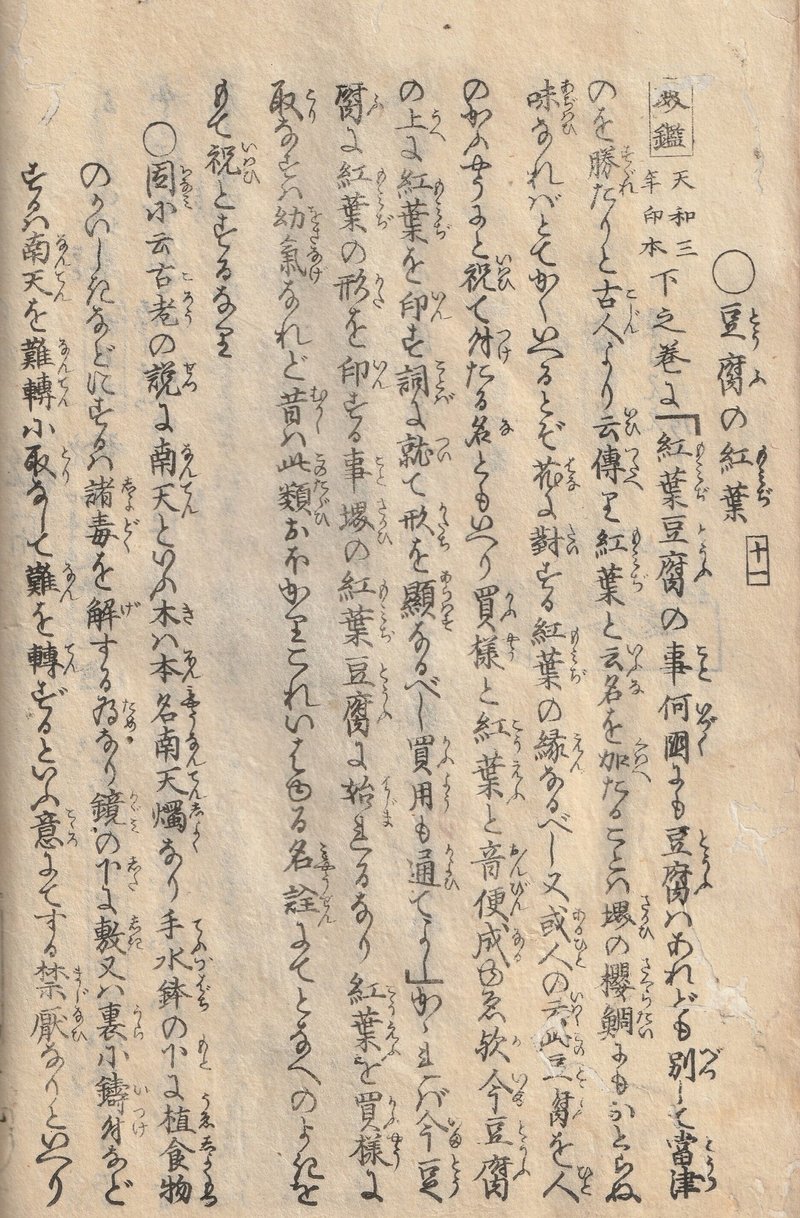 ○豆腐の紅葉 十一
天和三年印本下之巻に「紅葉豆腐の事何国にも豆腐はあれども別して当津
のを勝たりと古人より云傳り紅葉と云名を加たることは堺の櫻鯛にもおとらぬ
味なればとてかくいへるとぞ花に對する紅葉の縁なるべし又或人の云此豆腐を人
のかふやうにと祝て付たる名ともいへり買様と紅葉と音便成ゆゑ欤今豆腐
の上に紅葉を印す詞に就て形を顕なるべし買用も通てよし」かゝれば今豆
腐に紅葉の形を印する事堺の紅葉豆腐に始れるなり紅葉を買様に
取なすは幼気なれど昔は此類おほかりこれいはゆる名詮にてとなへのよきを
もて祝とするなり
○因に云古老の説に南天といふ木は本名南天燭なり手水鉢の下に植食物
のかいしきなどにするは諸毒を解する為なり鏡の下に敷又は裏に鋳付など
するは南天を難轉に取なして難を轉ずるといふ意にてする禁厭なりといへり